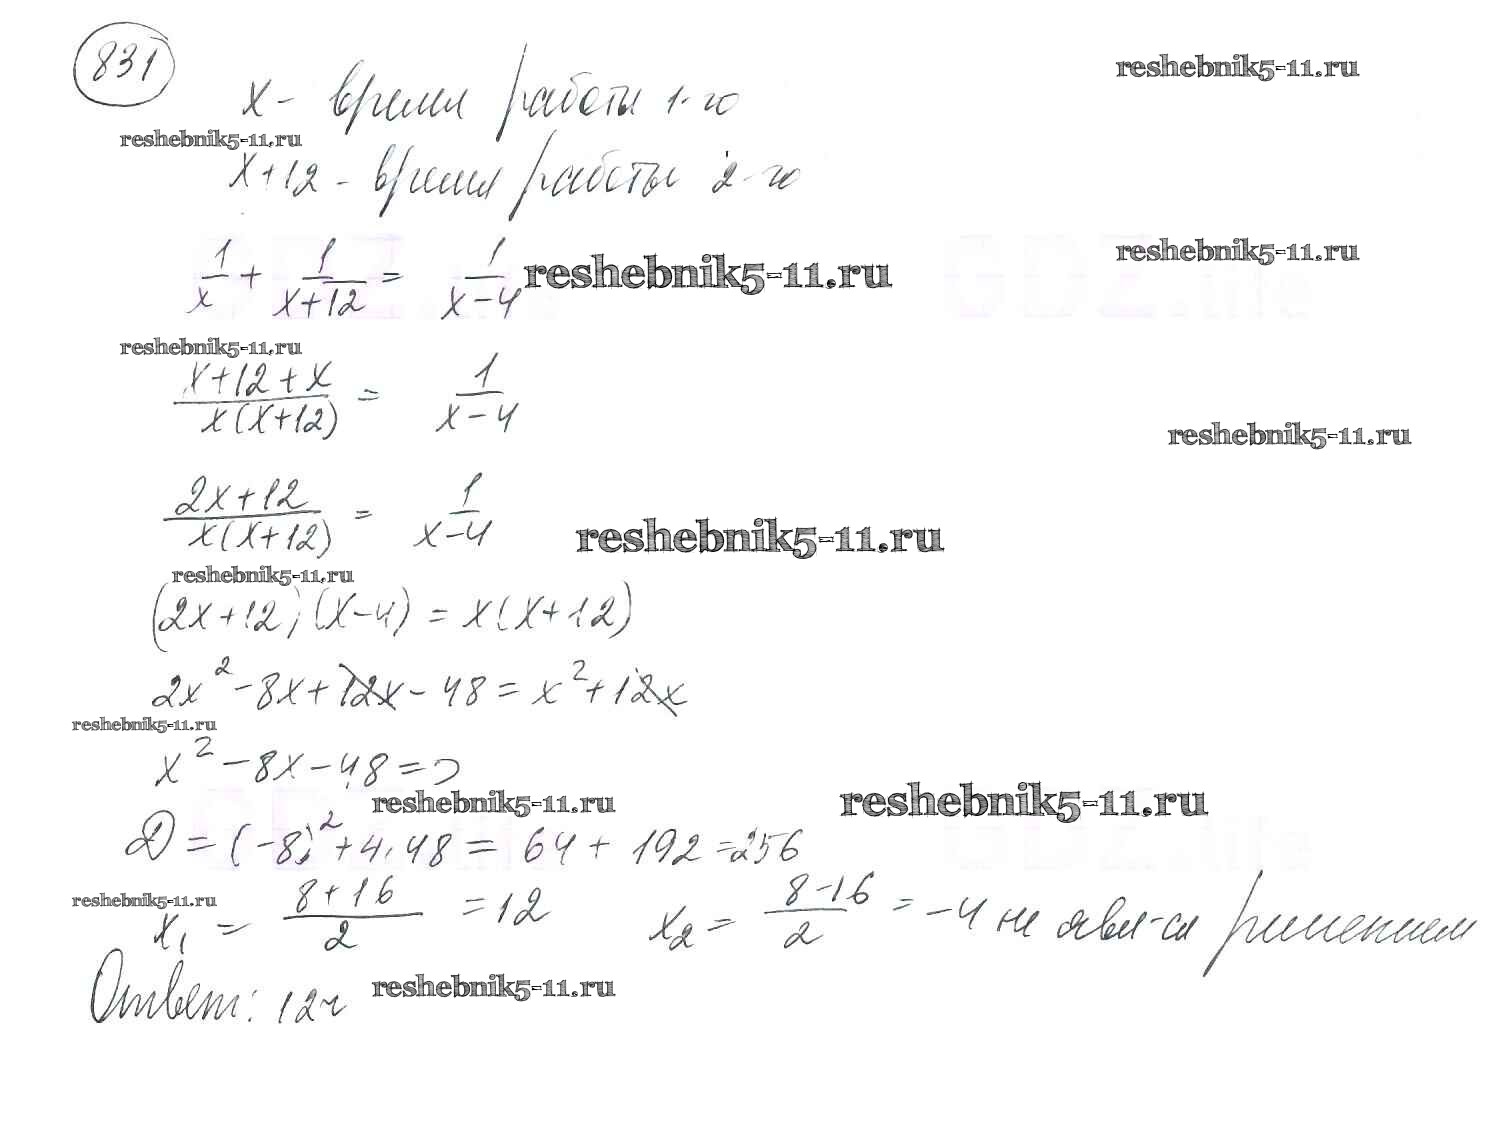 831
reshebnik5-11.ru
x - время работы 1-го
reshebnik5-11.ru
x+12 - время работы 2-го
reshebnik5-11.ru
1/x + 1/(x+12) = 1/(x-4) reshebnik5-11.ru
reshebnik5-11.ru
(x+12+x)/(x(x+12)) = 1/(x-4)
reshebnik5-11.ru
(2x+12)/(x(x+12)) = 1/(x-4)
reshebnik5-11.ru
reshebnik5-11.ru
(2x+12)(x-4) = x(x+12)
2x² - 8x + 12x - 48 = x² + 12x
reshebnik5-11.ru
x² - 8x - 48 = 0
reshebnik5-11.ru
reshebnik5-11.ru
D = (-8)² + 4·48 = 64 + 192 = 256
reshebnik5-11.ru
x₁ = (8+16)/2 = 12 x₂ = (8-16)/2 = -4 не явл-ся решением
Ответ: 12ч
reshebnik5-11.ru